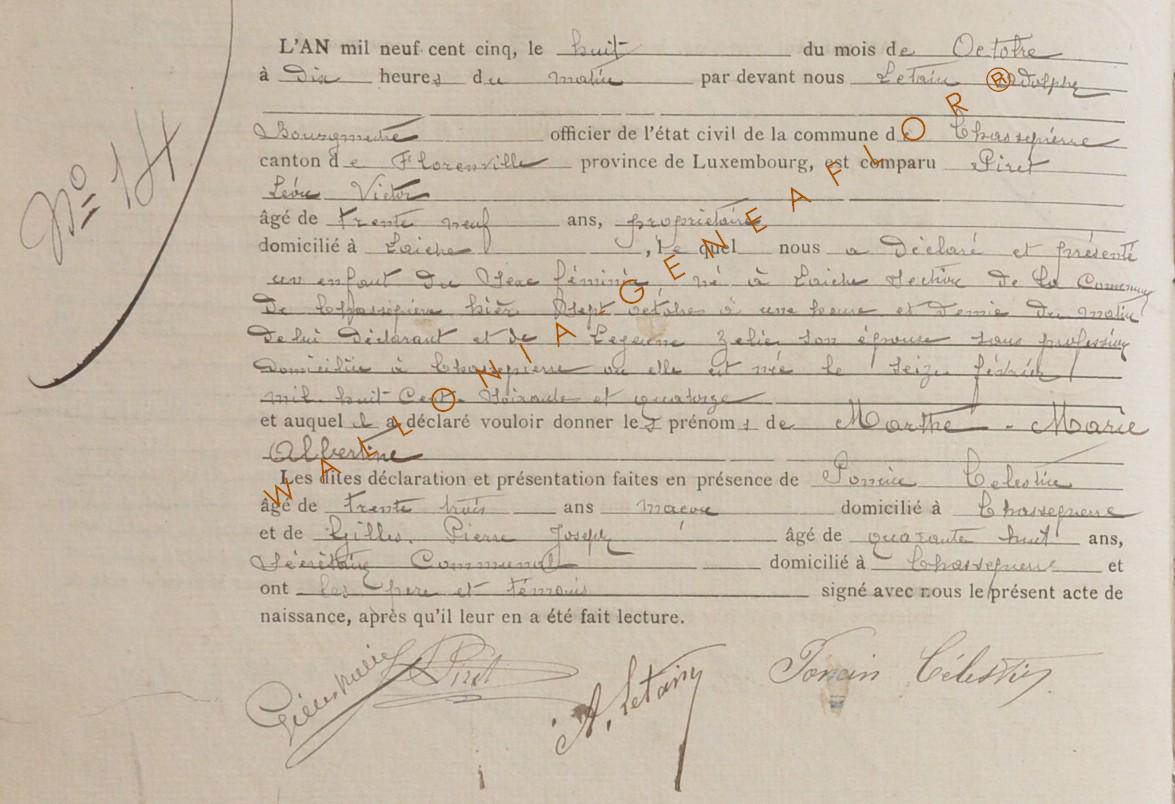 N° 14
L'AN mil neuf cent cinq, le huit du mois de Octobre
à Dix heures du matin par devant nous Letain Adolphe
Bourgmestre officier de l'état civil de la commune de Chassepierre
canton de Florenville province de Luxembourg, est comparu Piret
Léon Victor
âgé de trente neuf ans, propriétaire
domicilié à Laiche, lequel nous a Déclaré et présenté
un enfant du sexe féminin, né à Laiche section de la Commune
de Chassepierre hier sept octobre à une heure et demie du matin
de lui Déclarant et de Lejeune Zelie son épouse sans profession
Domiciliée à Chassepierre ou elle est née le seize février
mil huit Cent soixante et quatorze
et auquel il a déclaré vouloir donner les prénoms de Marthe - Marie
Albertine
Les dites déclaration et présentation faites en présence de Célestin
âgé de trente trois ans maçon domicilié à Chassepierre
et de Gilles Pierre Joseph âgé de quarante huit ans,
Sécrétaire Communal domicilié à Chassepierre et
ont les père et témoins signé avec nous le présent acte de
naissance, après qu'il leur en a été fait lecture.
Piret A. Letain Célestin
WALLONIA GENEAFLOR ®